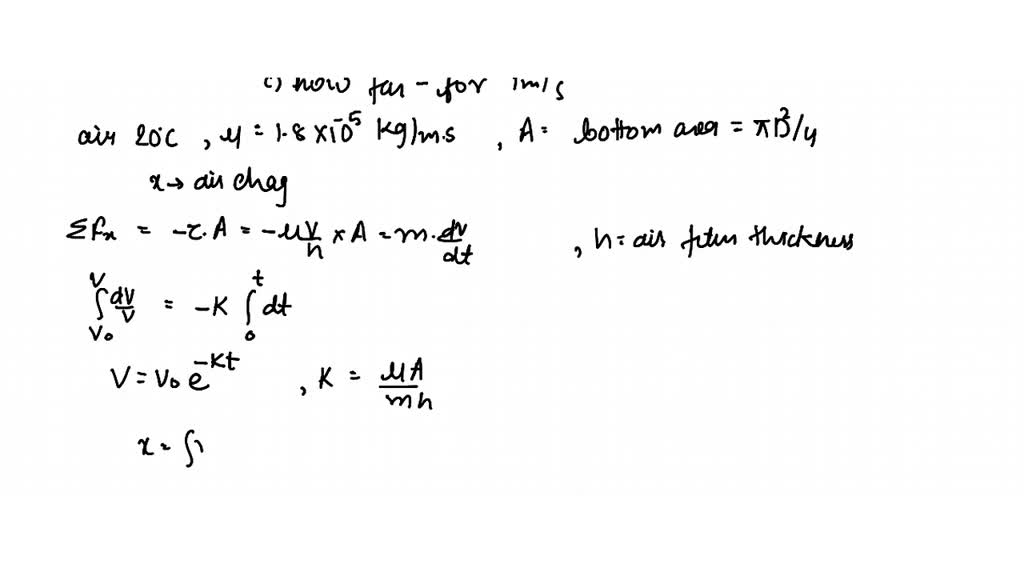 c) how far - for 1m/s
air 20°c , μ = 1.8 x 10^-5 kg/m.s , A = bottom area = πD²/4
x → air chag
ΣFx = -τ.A = -μV/h x A = m.dv/dt , h = air film thickness
∫_{V0}^{V} dV/V = -K ∫_{0}^{t} dt
V = V0 e^-Kt , K = μA/mh
x = ∫